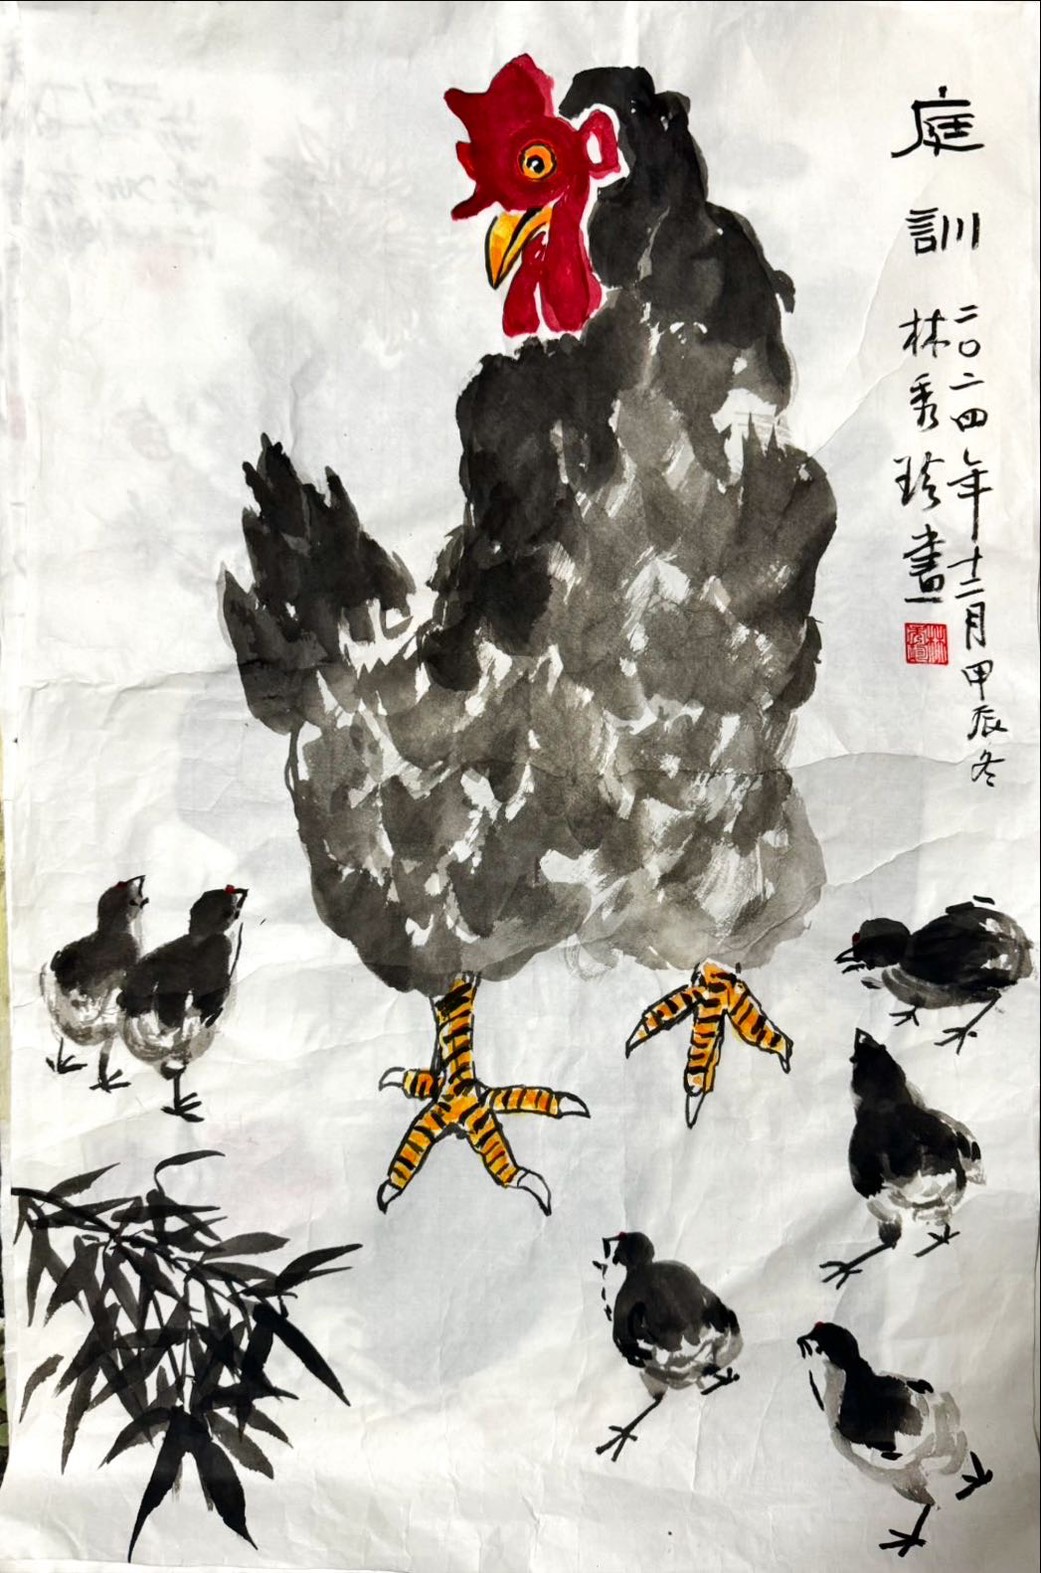 庭訓
二〇二四年十二月甲辰冬
林秀珍畫